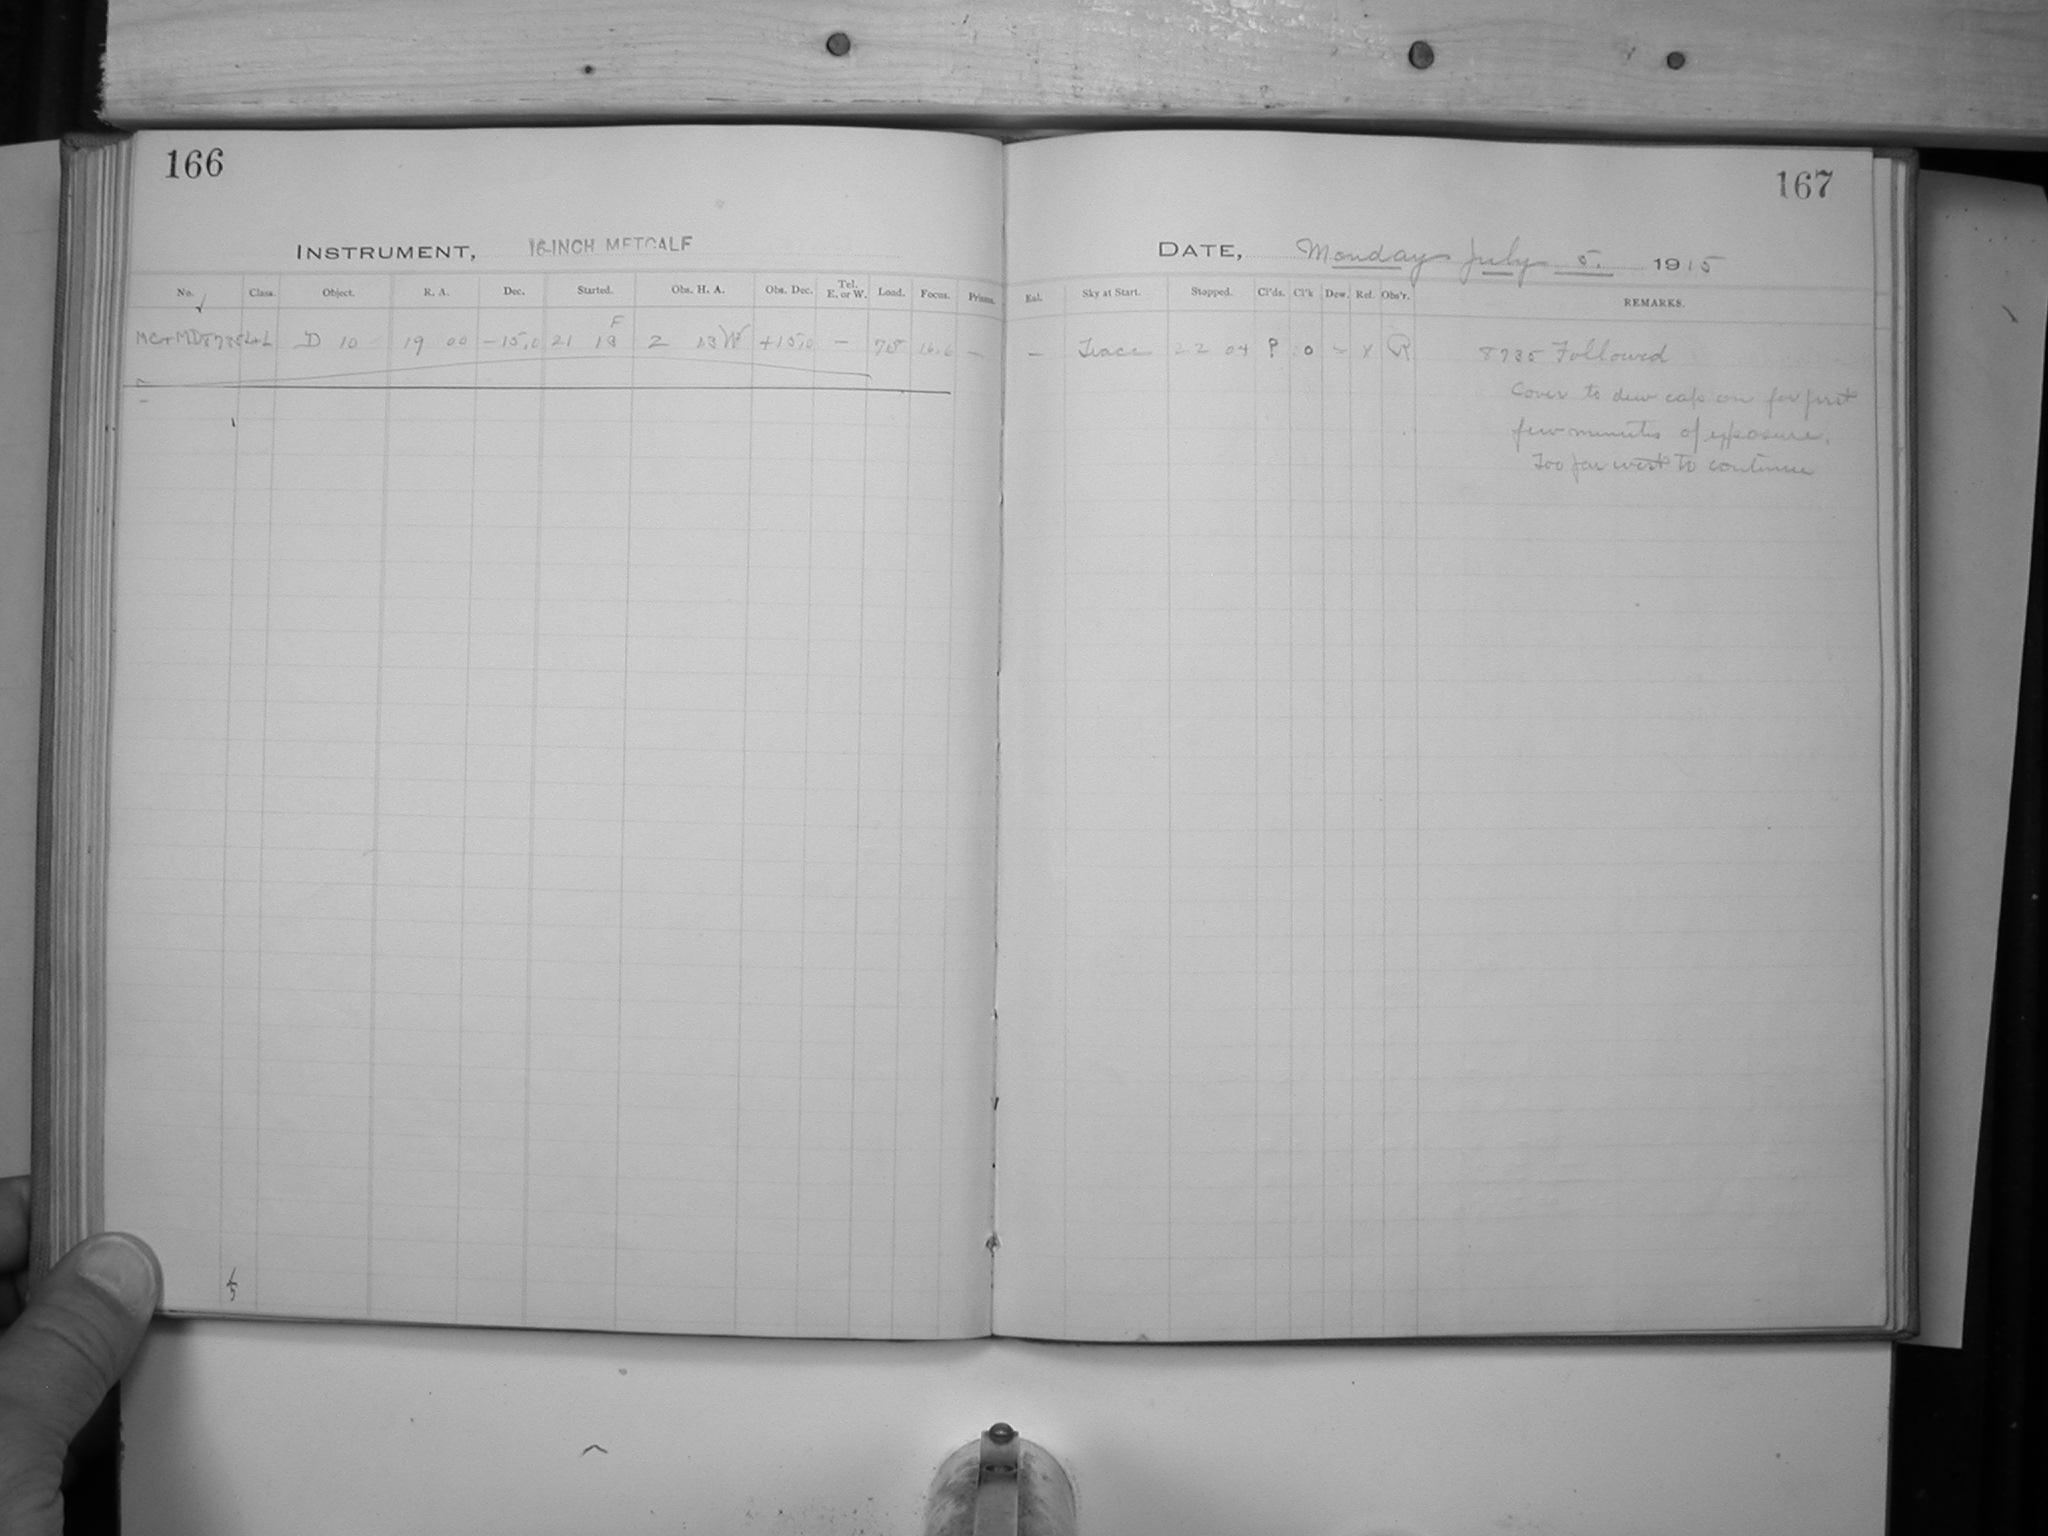 166
INSTRUMENT, 16-INCH METCALF
No. Class. Object. R. A. Dec. Started. Obs. H. A. Obs. Dec. Tel. E. or W. Load. Focus. Prisms.
D 10 19 00 -15,0 21 13 F 2 13 W +15,0 - 16.6 -
167
DATE, Monday July 5. 1915
Ext. Sky at Start. Stopped. Cl'ds. Cl'k Dew. Ref. Obs'r. REMARKS.
- Trace 22 04 P 0 - X R 8735 Followed
Cover to dew cap on for first
few minutes of exposure.
Too far west to continue